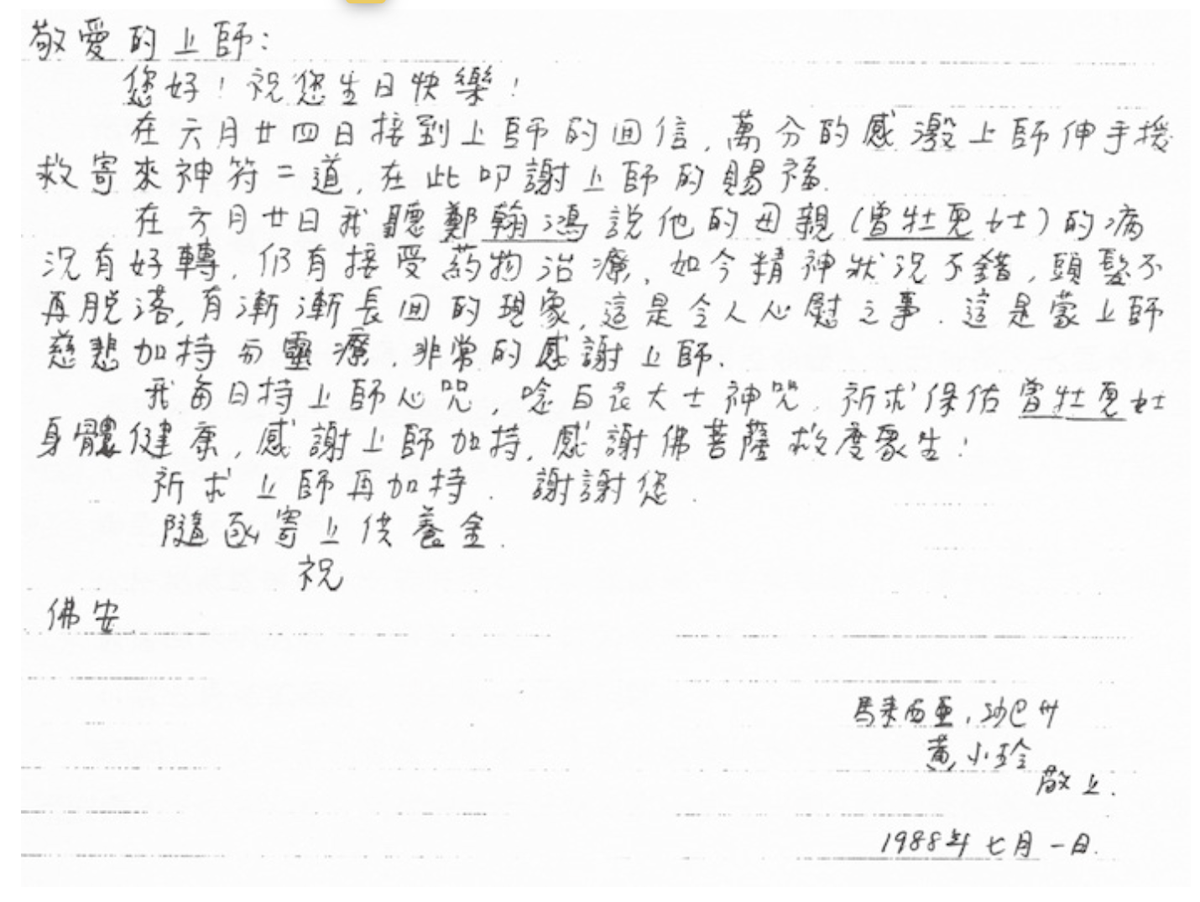 敬愛的上師：
您好！祝您生日快樂！
在六月廿四日接到上師的回信，萬分的感激上師伸手援
救寄來神符二道，在此叩謝上師的賜福.
在六月廿日我聽鄭翰鴻說他的母親(曾牡兎女士)的病
況有好轉，仍有接受葯物治療，如今精神狀況不錯，頭髮不
再脫落，有漸漸長回的現象，這是令人心慰之事．這是蒙上師
慈悲加持分靈療，非常的感謝上師．
我每日持上師心咒，唸白衣大士神咒，祈求保佑曾牡兎女士
身體健康，感謝上師加持，感謝佛菩薩救度眾生！
祈求上師再加持． 謝謝您．
隨函寄上供養金．
祝
佛安
馬來西亞，沙巴州
黃小玲
敬上．
1988年七月一日．